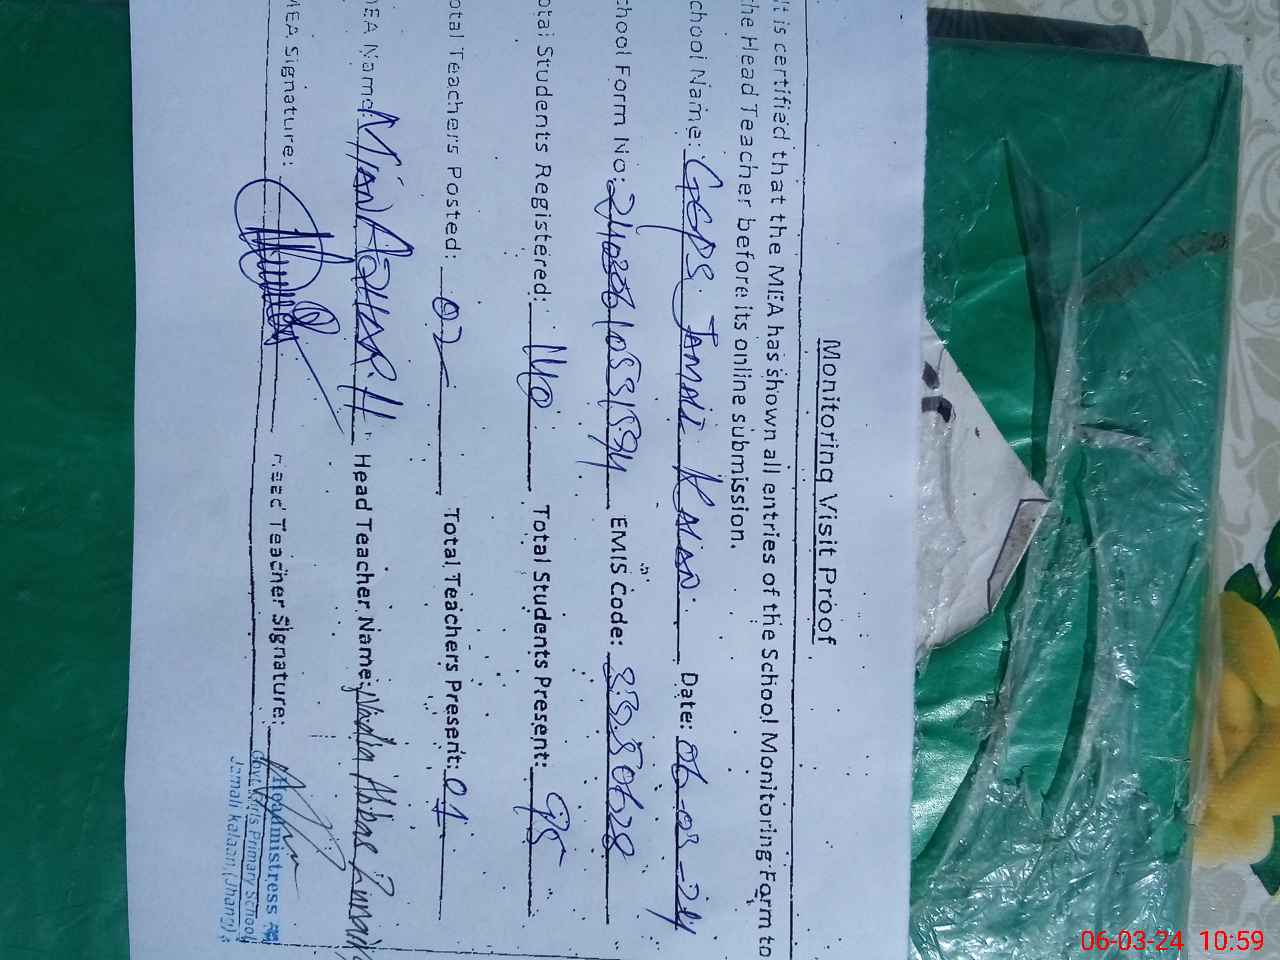 Monitoring Visit Proof
It is certified that the MEA has shown all entries of the School Monitoring Form to
the Head Teacher before its online submission.
chool Name: GGPS JAMALI KALAN. Date: 06-03-24
chool Form No: EMIS Code: 33350628
otal Students Registered: 140 Total Students Present: 95
otal Teachers Posted: 02 Total Teachers Present: 01
MEA Name: MIAN AZHAR H Head Teacher Name: Nadia Abbas
MEA Signature: Head Teacher Signature:
Headmistress
Govt. Girls Primary School
Jamali Kalaan (Jhang)
06-03-24 10:59